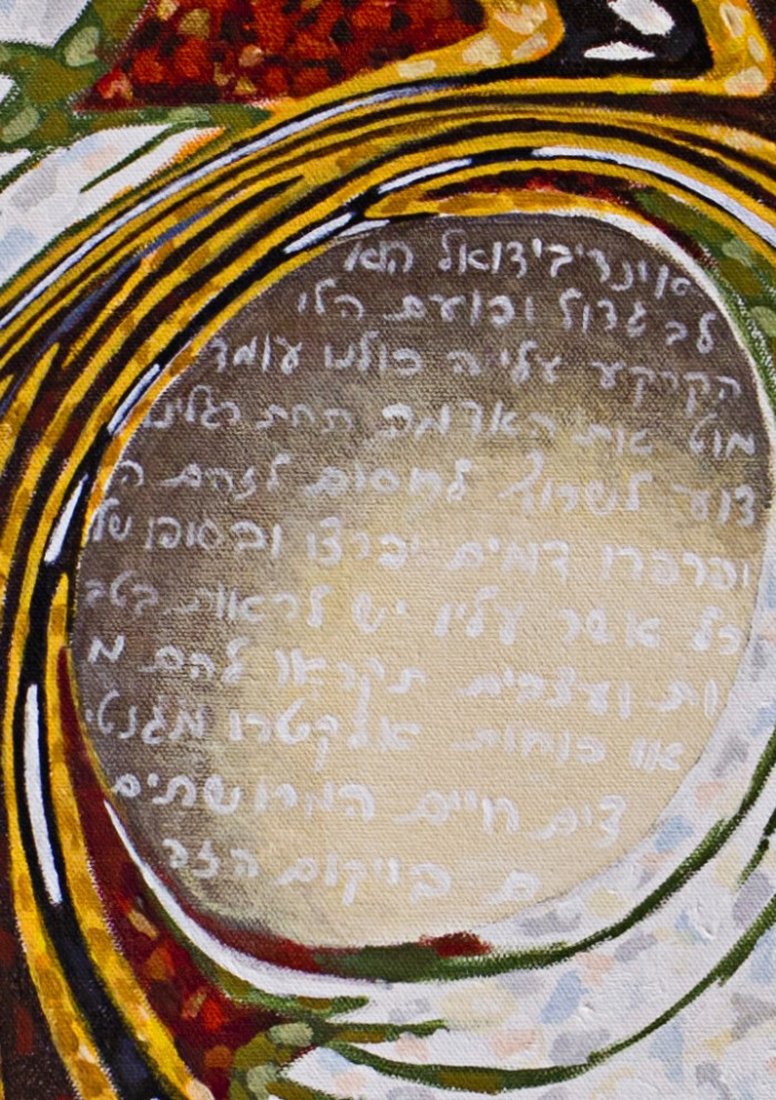 אינדיבידואל הוא
לב גדול ופועם הלי
הקרקע עליה כולנו עומד
מוט את האדמה תחת רגלינו
צוער לשרוף לחסום לזהם ה
ופרפרו דמים יפרצו ובסופו של
כל אשר עליו יש לראות בטב
ות ועצמים תקראו להם מ
או כוחות אלקטרו מגנטי
צים חיים הוירושתים
ם ביקום הזה